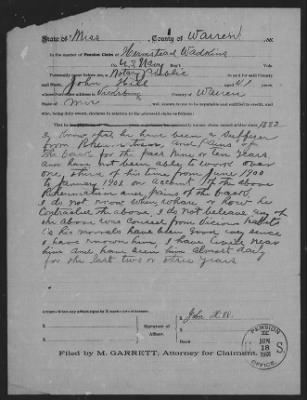 State of Miss, County of Warren ss.
In the matter of Pension Claim of Hemstead Wadkins
Co. U.S Navy Reg't Vols.
Personally came before me, a Notary Public in and for said County
and State, John Hill aged 41 years
Vicksburg County of Warren
Miss well known to me to be reputable and entitled to credit, and
who, being duly sworn, declares in relation to the aforesaid claim as follows:
1882
I know that he have been a sufferer
from Rheumatism and pains of
the back for the past nine or ten years
and have not been able to work over
one third of his time from June 1900
to January 1901 on account of the above
Rheumatism and pains of the back
I do not know when where or how he
contracted the above. I do not believe any of
the above was caused from vicious habits
as his morals have been good ever since
I have known him, I have lived near
him and have seen him almost daily
for the last two or three years
Signature of Affiant.
John Hill
PENSION
JUN 18 1901
OFFICE
S
Filed by M. GARRETT, Attorney for Claimant.